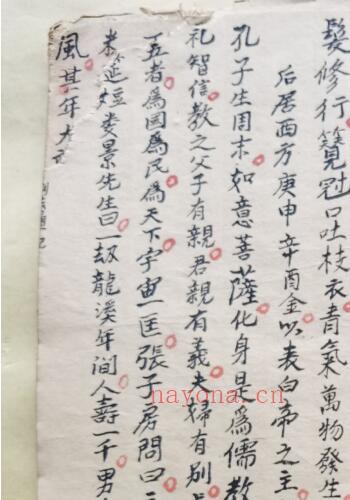 髮修行簪冠口吐枝衣青氣萬物發生
后居西方庚申辛酉金以表白帝之主
孔子生周末如意菩薩化身是為儒教
礼智信教之父子有親君親有義夫婦有別
五者為國為民為天下宇宙一匡張子房問曰
延短娄景先生曰一刼龍溪年间人壽一千男
風其年
nayona.cn